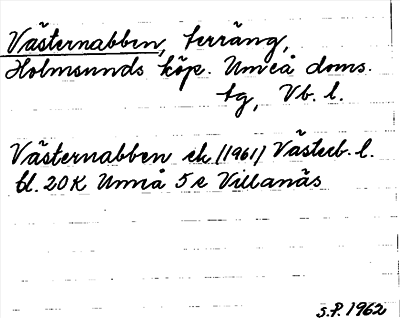 Västernabben, terräng,
Holmsunds köp. Umeå doms.
tg, Vb. l.
Västernabben ek (1961) Västerb. l.
bl. 20 K Umeå 5 e Villanäs
S.P. 1962